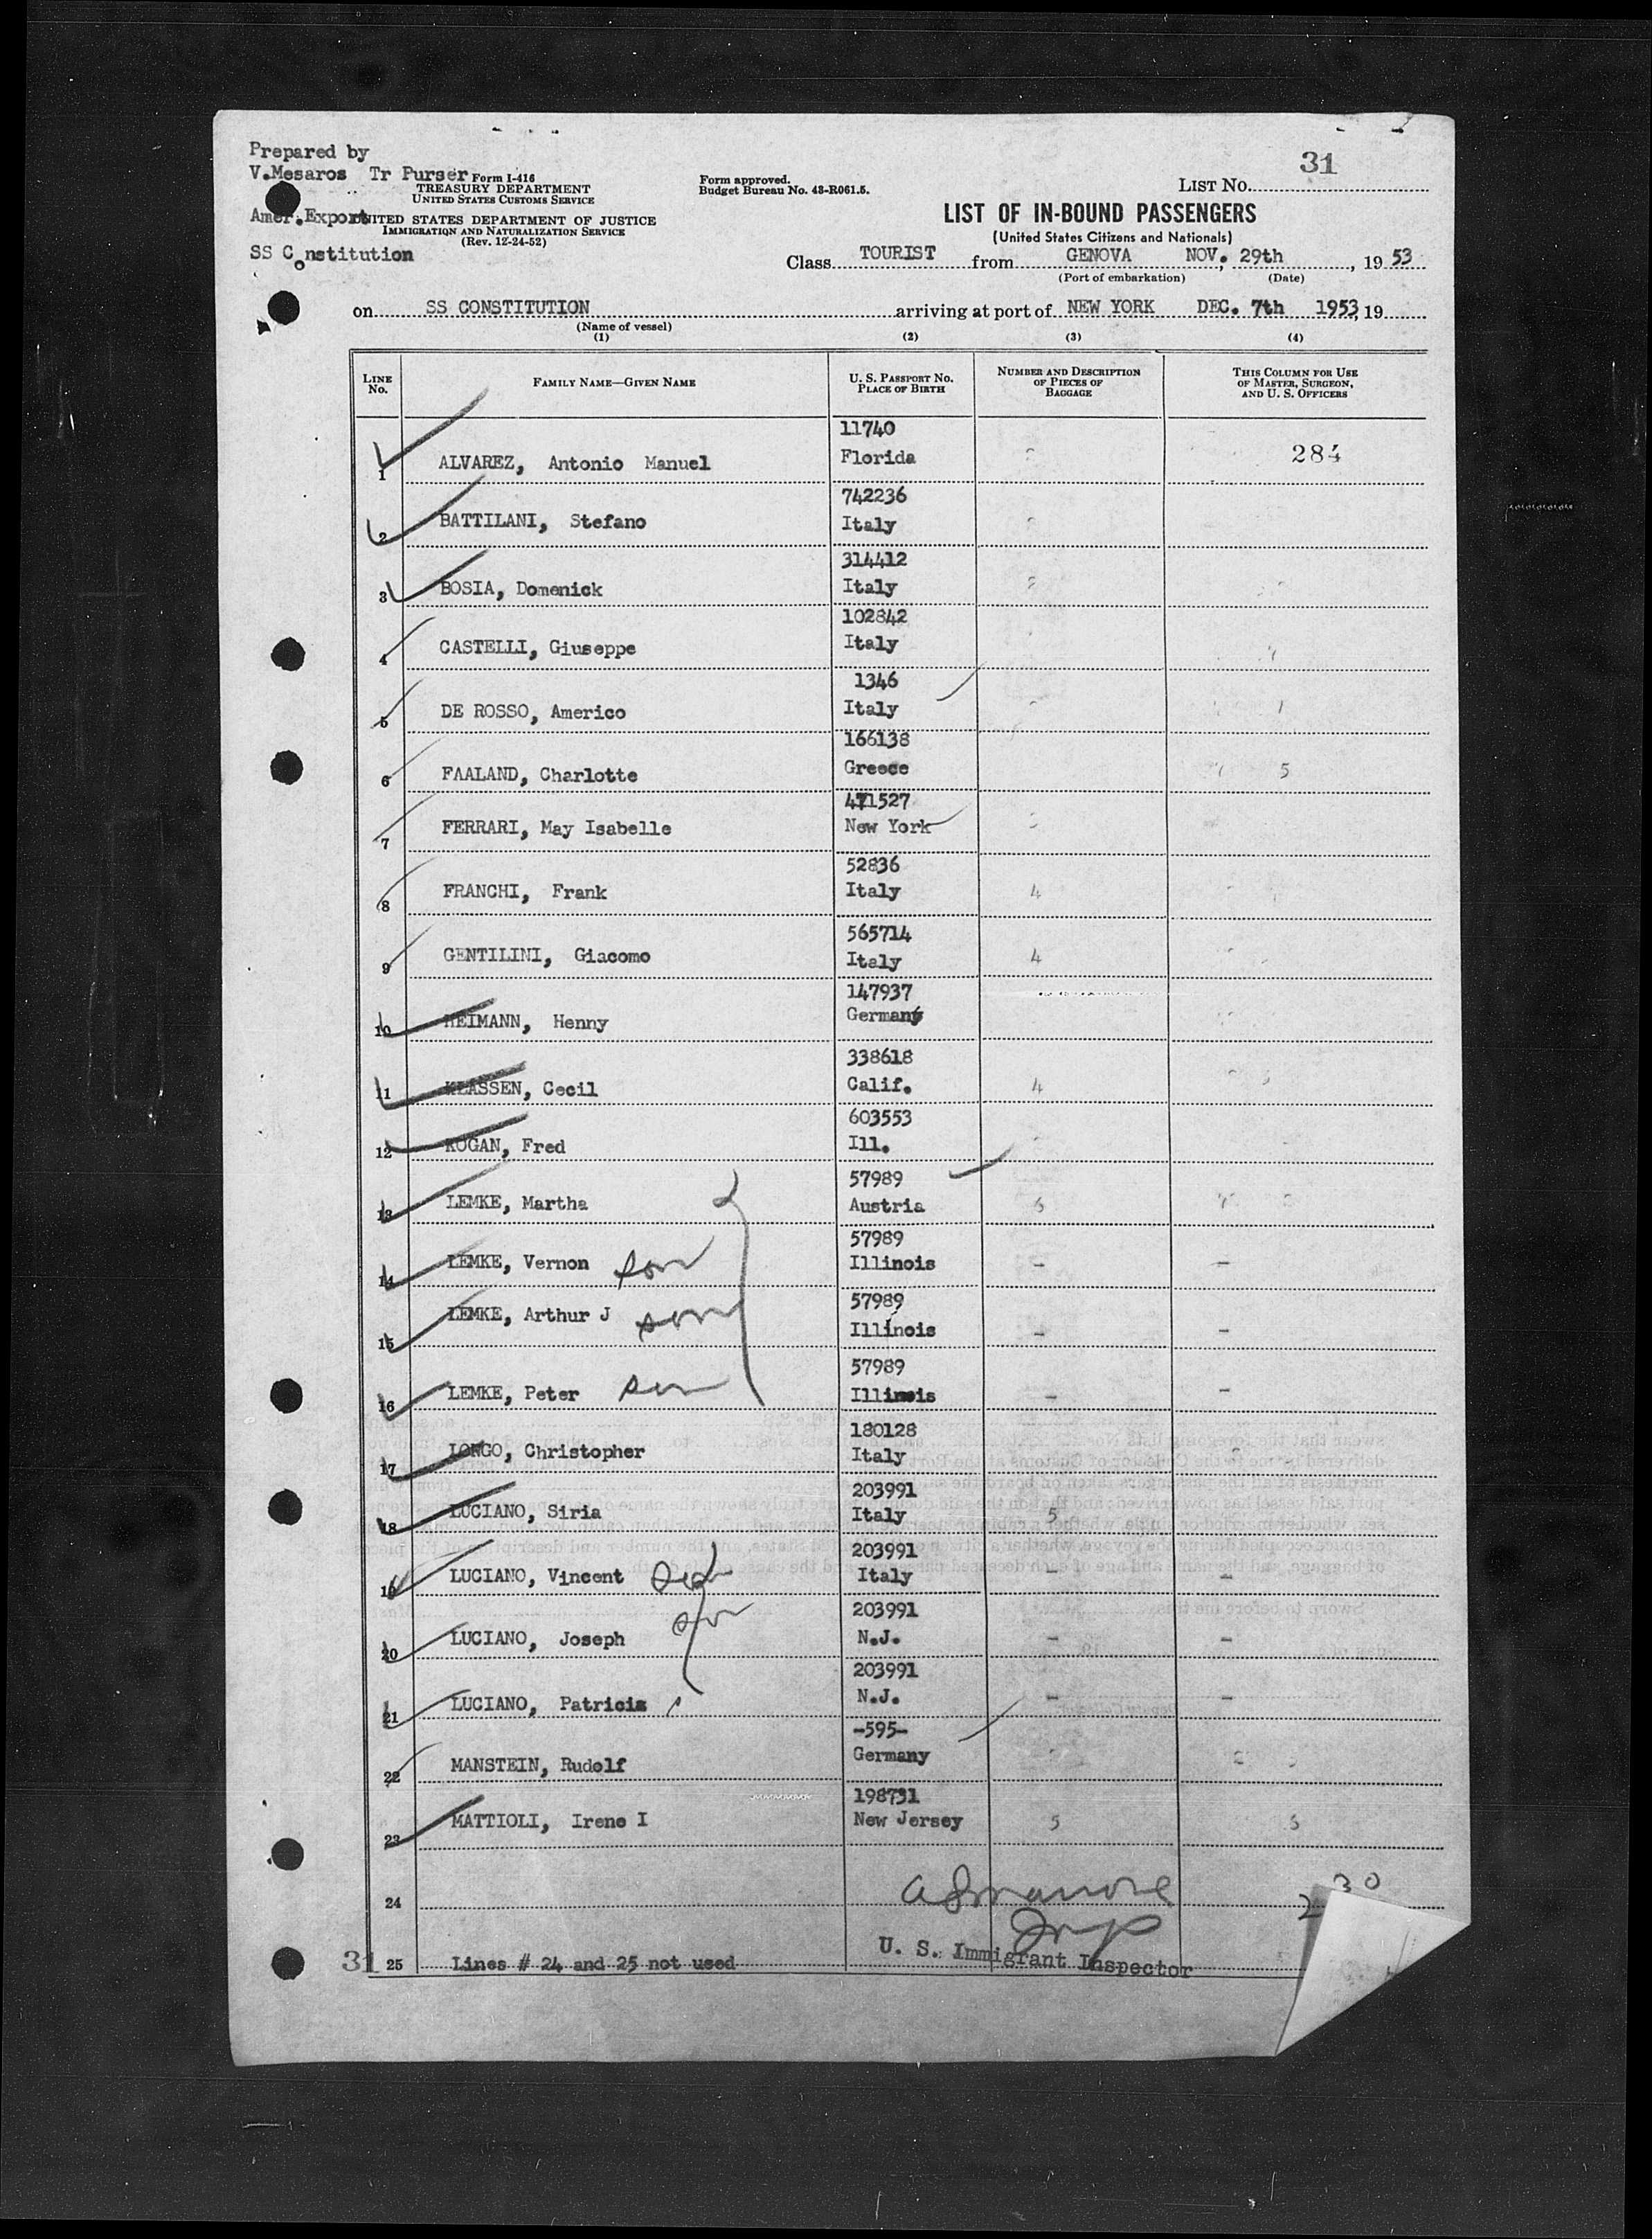 Prepared by
31
V.Mesaros Tr Purser Form I-416
Form approved.
LIST No.
TREASURY DEPARTMENT
Budget Bureau No. 43-R061.5.
UNITED STATES CUSTOMS SERVICE
Amer.Export UNITED STATES DEPARTMENT OF JUSTICE
LIST OF IN-BOUND PASSENGERS
IMMIGRATION AND NATURALIZATION SERVICE
(United States Citizens and Nationals)
(Rev. 12-24-52)
SS Constitution
Class TOURIST from GENOVA NOV. 29th, 19 53
(Port of embarkation) (Date)
on SS CONSTITUTION arriving at port of NEW YORK DEC. 7th 1953, 19
(Name of vessel)
(1) (2) (3) (4)
LINE No. FAMILY NAME—GIVEN NAME U. S. PASSPORT No. PLACE OF BIRTH NUMBER AND DESCRIPTION OF PIECES OF BAGGAGE THIS COLUMN FOR USE OF MASTER, SURGEON, AND U. S. OFFICERS
11740
1 ALVAREZ, Antonio Manuel Florida 284
742236
2 BATTILANI, Stefano Italy
314412
3 BOSIA, Domenick Italy
102842
4 CASTELLI, Giuseppe Italy
1346
5 DE ROSSO, Americo Italy
166138
6 FAALAND, Charlotte Greece 5
471527
7 FERRARI, May Isabelle New York
52836
8 FRANCHI, Frank Italy 4
565714
9 GENTILINI, Giacomo Italy 4
147937
10 HEIMANN, Henny Germany
338618
11 KLASSEN, Cecil Calif. 4
603553
12 KOGAN, Fred Ill.
57989
13 LEMKE, Martha Austria
57989
14 LEMKE, Vernon son Illinois - -
57989
15 LEMKE, Arthur J son Illinois - -
57989
16 LEMKE, Peter son Illinois - -
180128
17 LONGO, Christopher Italy
203991
18 LUCIANO, Siria Italy 5
203991
19 LUCIANO, Vincent Italy - -
203991
20 LUCIANO, Joseph son N.J. - -
203991
21 LUCIANO, Patricia N.J. - -
-595-
22 MANSTEIN, Rudolf Germany
198731
23 MATTIOLI, Irene I New Jersey 5
24
Insp
U. S. Immigrant Inspector
31 25 Lines # 24 and 25 not used